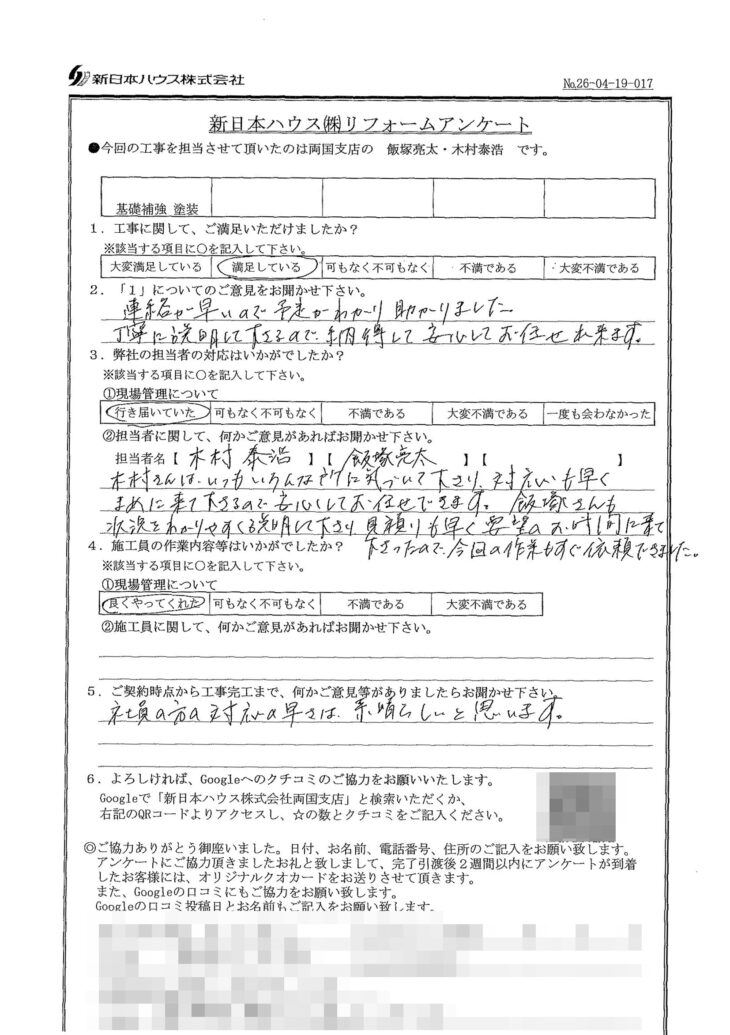 新日本ハウス株式会社
№26-04-19-017
新日本ハウス㈱リフォームアンケート
●今回の工事を担当させて頂いたのは両国支店の 飯塚亮太・木村泰浩 です。
基礎補強 塗装
1．工事に関して、ご満足いただけましたか？
※該当する項目に○を記入して下さい。
大変満足している 満足している 可もなく不可もなく 不満である 大変不満である
2．「1」についてのご意見をお聞かせ下さい。
連絡が早いので予定がわかり助かりました。
丁寧に説明して下さるので、納得して安心してお任せ出来ます。
3．弊社の担当者の対応はいかがでしたか？
※該当する項目に○を記入して下さい。
①現場管理について
行き届いていた 可もなく不可もなく 不満である 大変不満である 一度も会わなかった
②担当者に関して、何かご意見があればお聞かせ下さい。
担当者名【 木村 泰浩 】【 飯塚亮太 】【 】
木村さんは、いつもいろんな所に気づいて下さり、対応も早く
まめに来て下さるので安心してお任せできます。飯塚さんも
状況をわかりやすく説明して下さり、見積りも早く要望のお時間に来て
下さったので、今回の作業もすぐ依頼できました。
4．施工員の作業内容等はいかがでしたか？
※該当する項目に○を記入して下さい。
①現場管理について
良くやってくれた 可もなく不可もなく 不満である 大変不満である
②施工員に関して、何かご意見があればお聞かせ下さい。
5．ご契約時点から工事完工まで、何かご意見等がありましたらお聞かせ下さい。
社員の方の対応の早さは、素晴らしいと思います。
6．よろしければ、Googleへのクチコミのご協力をお願いいたします。
Googleで「新日本ハウス株式会社両国支店」と検索いただくか、
右記のQRコードよりアクセスし、☆の数とクチコミをご記入ください。
◎ご協力ありがとう御座いました。日付、お名前、電話番号、住所のご記入をお願い致します。
アンケートにご協力頂きましたお礼と致しまして、完了引渡後２週間以内にアンケートが到着
したお客様には、オリジナルクオカードをお送りさせて頂きます。
また、Googleの口コミにもご協力をお願い致します。
Googleの口コミ投稿日とお名前もご記入をお願い致します。